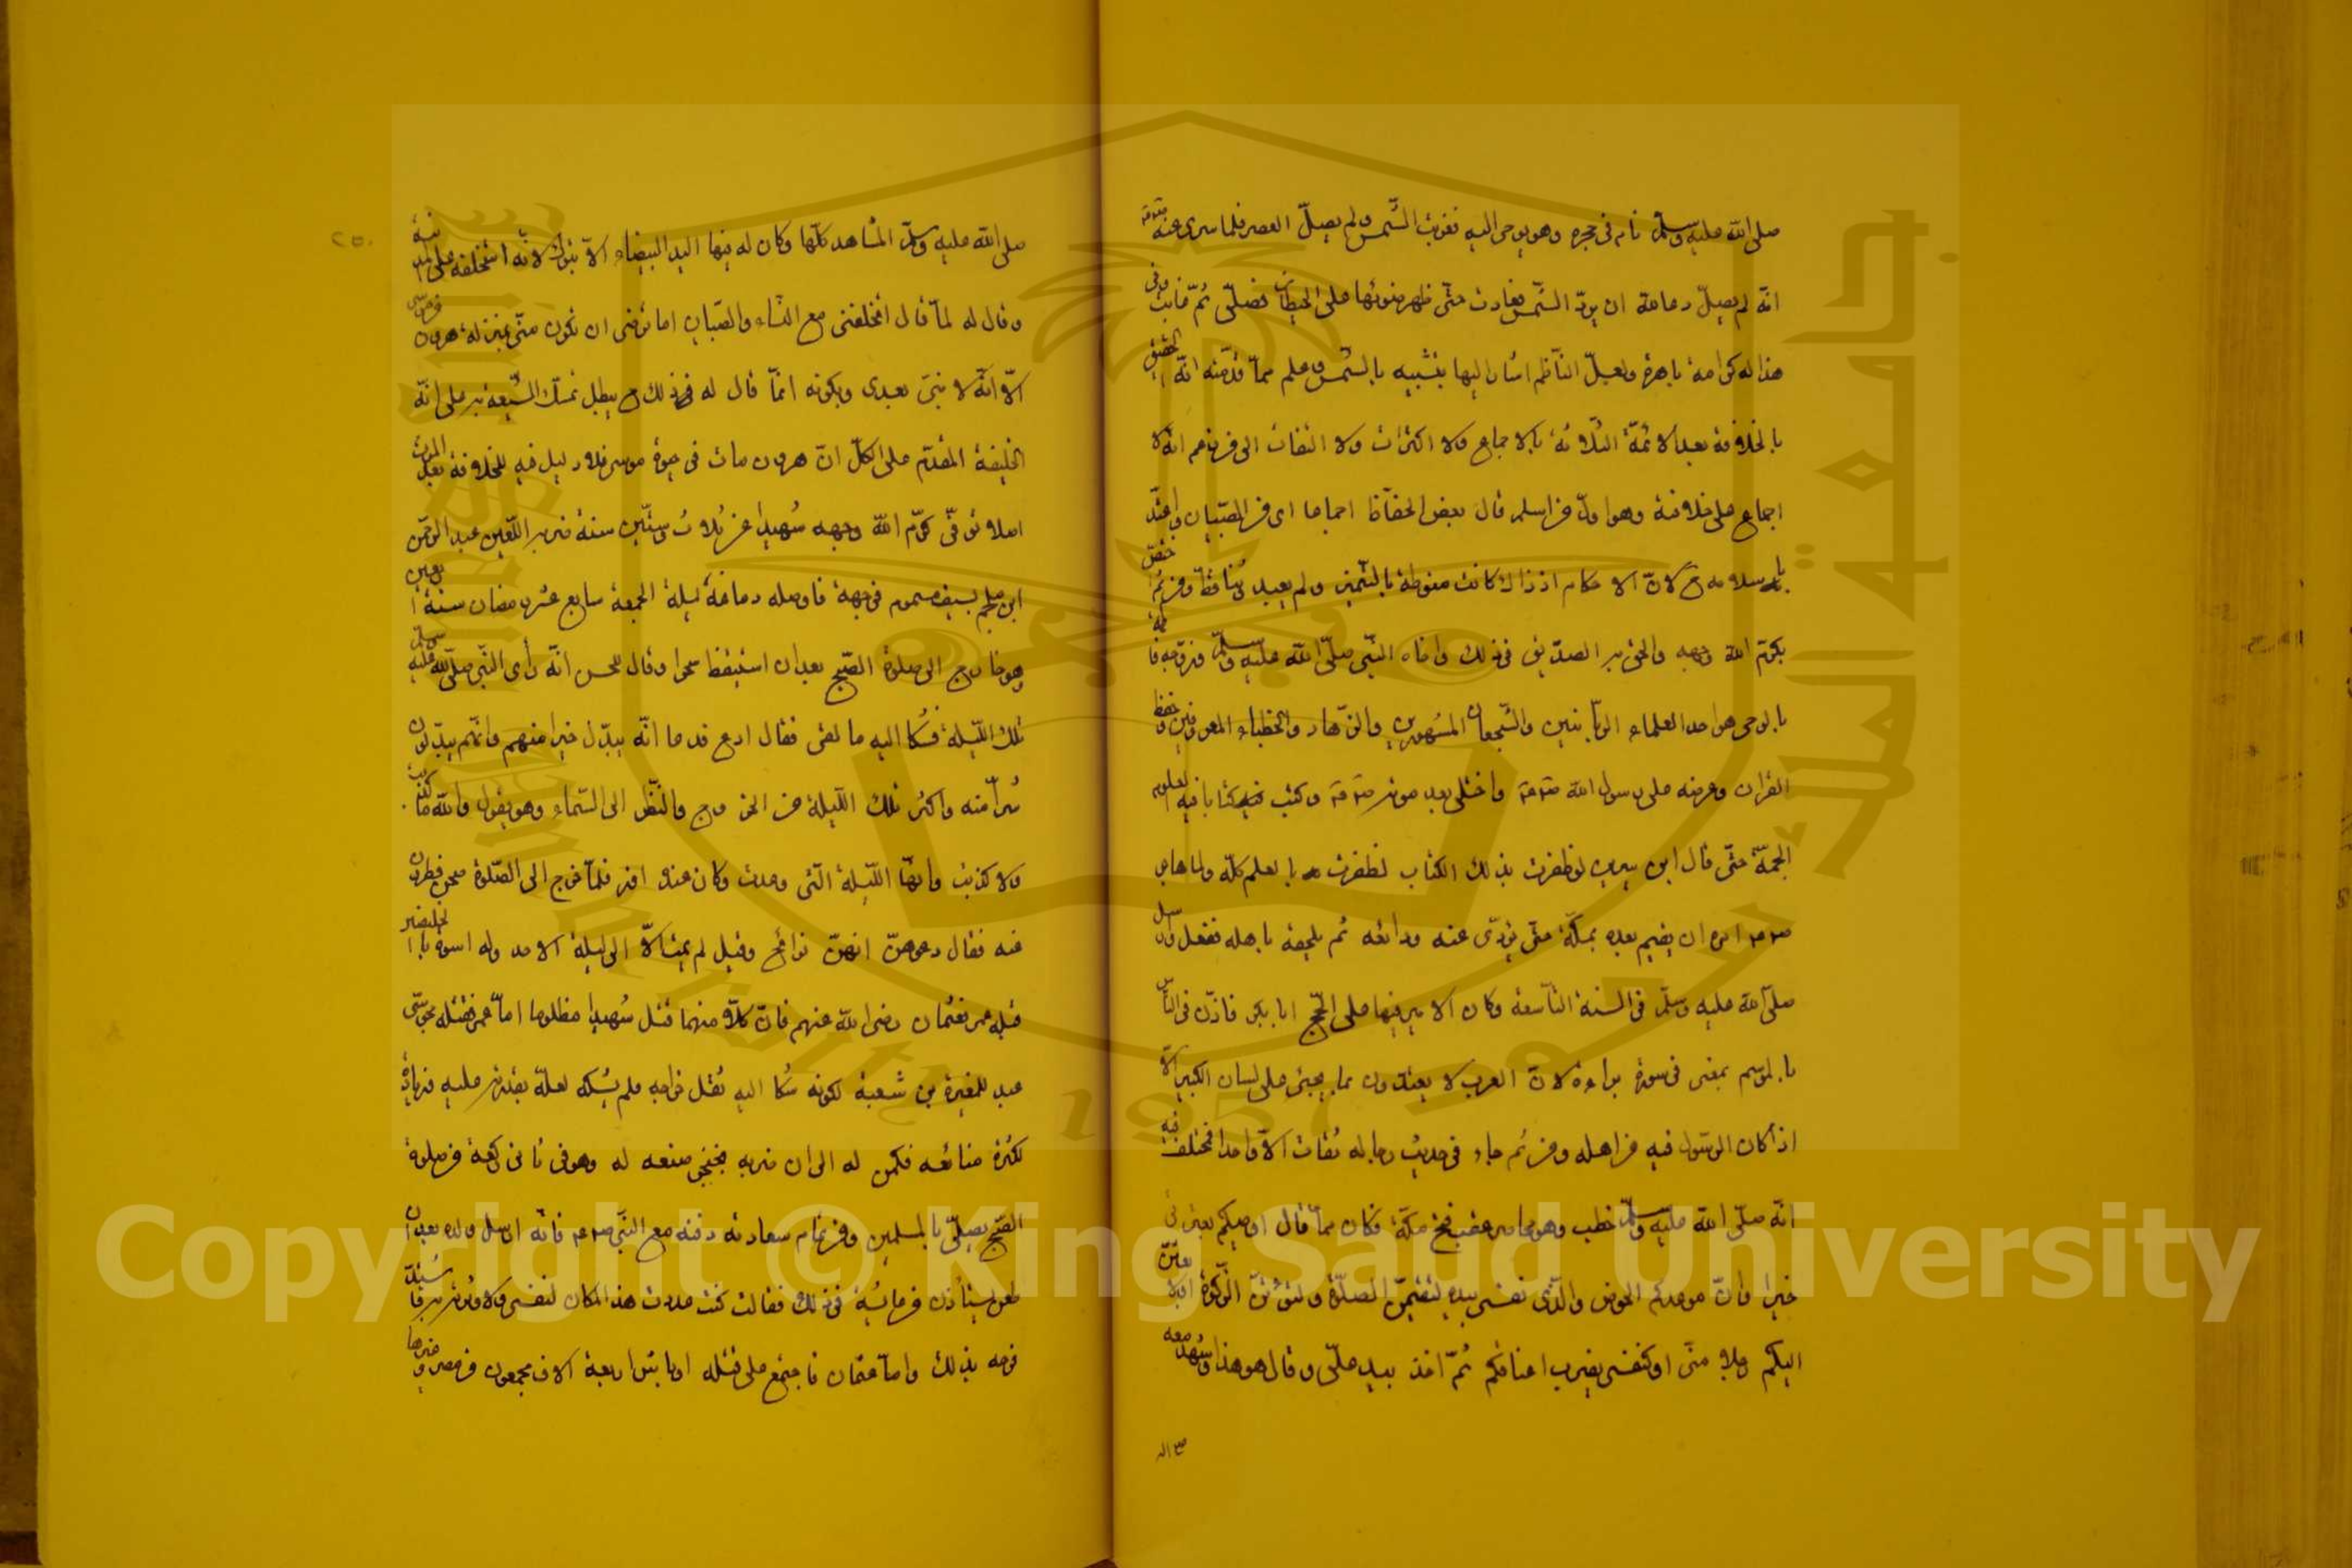 صلى الله عليه وسلم نام فى حجره وهو يوحى اليه فغربت الشمس ولم يصل العصر فلما سرى عنه
انه لم يصل دعا الله ان يرد الشمس فعادت حتى ظهر ضوئها على الحيطان فصلى ثم غابت وفى
هذا له كرامة باهرة ولعل الناظم اشار اليها بتشبيه بالشمس وعلم مما قدمته انه الحقيق
بالخلافة بعد الائمة الثلاثة بالاجماع ولا اكتراث ولا التفات الى من زعم انه لا
اجماع على خلافته وهو اول من اسلم قال بعض الحفاظ اجماعا اى من الصبيان واعتد
باسلامه ح لان الاحكام اذ ذاك كانت منوطة بالتميز ولم يعبد وثنا قط ومن ثم خص
بكرم الله وجهه والحق به الصديق فى ذلك واخاه النبى صلى الله عليه وسلم وزوجه فاطمة
بالوحى هو احد العلماء الربانيين والشجعان المشهورين والزهاد والخطباء المعروفين وحفظ
القران وعرضه على رسول الله واختلى بعد موته وكتب فيه كتابا فيه العلوم
الجمة حتى قال ابن سيرين لو ظفرت بذلك الكتاب لظفرت بالعلم كله ولما هاجر
امره ان يقيم بعده بمكة حتى يؤدى عنه ودائعه ثم يلحقه باهله ففعل وارسل
صلى الله عليه وسلم فى السنة التاسعة وكان الامير فيها على الحج ابا بكر فاذن فى الناس
بالموسم بمعنى فى سورة براءة لان العرب لا يعتدون بما يجئ على لسان الكبير الا
اذا كان الرسول فيه من اهله ومن ثم جاء فى حديث رجاله ثقات الا واحدا فمختلف فيه
انه صلى الله عليه وسلم خطب وهو محاصر عقب فتح مكة فكان مما قال اوصيكم بعترتى
خيرا وان موعدكم الحوض والذى نفسى بيده لتقيمن الصلاة ولتؤتن الزكوة او لابعثن
اليكم رجلا منى او كنفسى يضرب اعناقكم ثم اخذ بيد على وقال هو هذا وشهد معه
صلى الله عليه وسلم المشاهد كلها وكان له فيها اليد البيضاء الا تبوك لانه استخلفه على المدينة
وقال له لما قال اتخلفنى مع النساء والصبيان اما ترضى ان تكون منى بمنزلة هرون من موسى
الا انه لا نبى بعدى وبكونه انما قال له فى ذلك ح يبطل تمسك الشيعة به على انه
الخليفة المقدم على الكل ان هرون مات فى حيوة موسى فلا دليل فيه للخلافة بعد الموت
اصلا توفى كرم الله وجهه شهيدا عن ثلاث وستين سنة ضربه اللعين عبد الرحمن
ابن ملجم بسيف مسموم فى جبهة فاوصله دماغه ليلة الجمعة سابع عشر رمضان سنة اربعين
وهو خارج الى صلوة الصبح بعد ان استيقظ سحرا وقال للحسن انه رأى النبى صلى الله عليه وسلم
تلك الليلة فشكا اليه ما لقى فقال ادع فدعا انه يبدل خيرا منهم وانهم يبدلون
شرا منه واكثر تلك الليلة من الخروج والنظر الى السماء وهو يقول والله ما كذبت
ولا كذبت وانها الليلة التى وعدت وكان عنده اوز فلما خرج الى الصلوة صحن فطردن
عنه فقال دعوهن انهن نوائح وقيل لم يمت الا الى ليلة الاحد وله اسوة بالخليفتين
قبله عمر فعثمان رضى الله عنهم فان كلا منهما قتل شهيدا مظلوما اما عمر فقتله مجوسى
عبد للمغيرة بن شعبة لكونه شكا اليه ثقل خراجه فلم يشكه لعله بقدرته عليه وزيادة
لكثرة صنائعه فكمن له الى ان ضربه بخنجر صنعه له وهو فى ثانى ركعة من صلوة
الصبح يصلى بالمسلمين ومن تمام سعادته دفنه مع النبى فانه ارسل ولده بعد ان
طعن يستأذن من عائشة فى ذلك فقالت كنت مدت هذا المكان لنفسى ولاوثرنه به
فرحه بذلك واما عثمان فاجتمع على قتله اوباش اربعة الاف مجمعون من مصر وغيرها